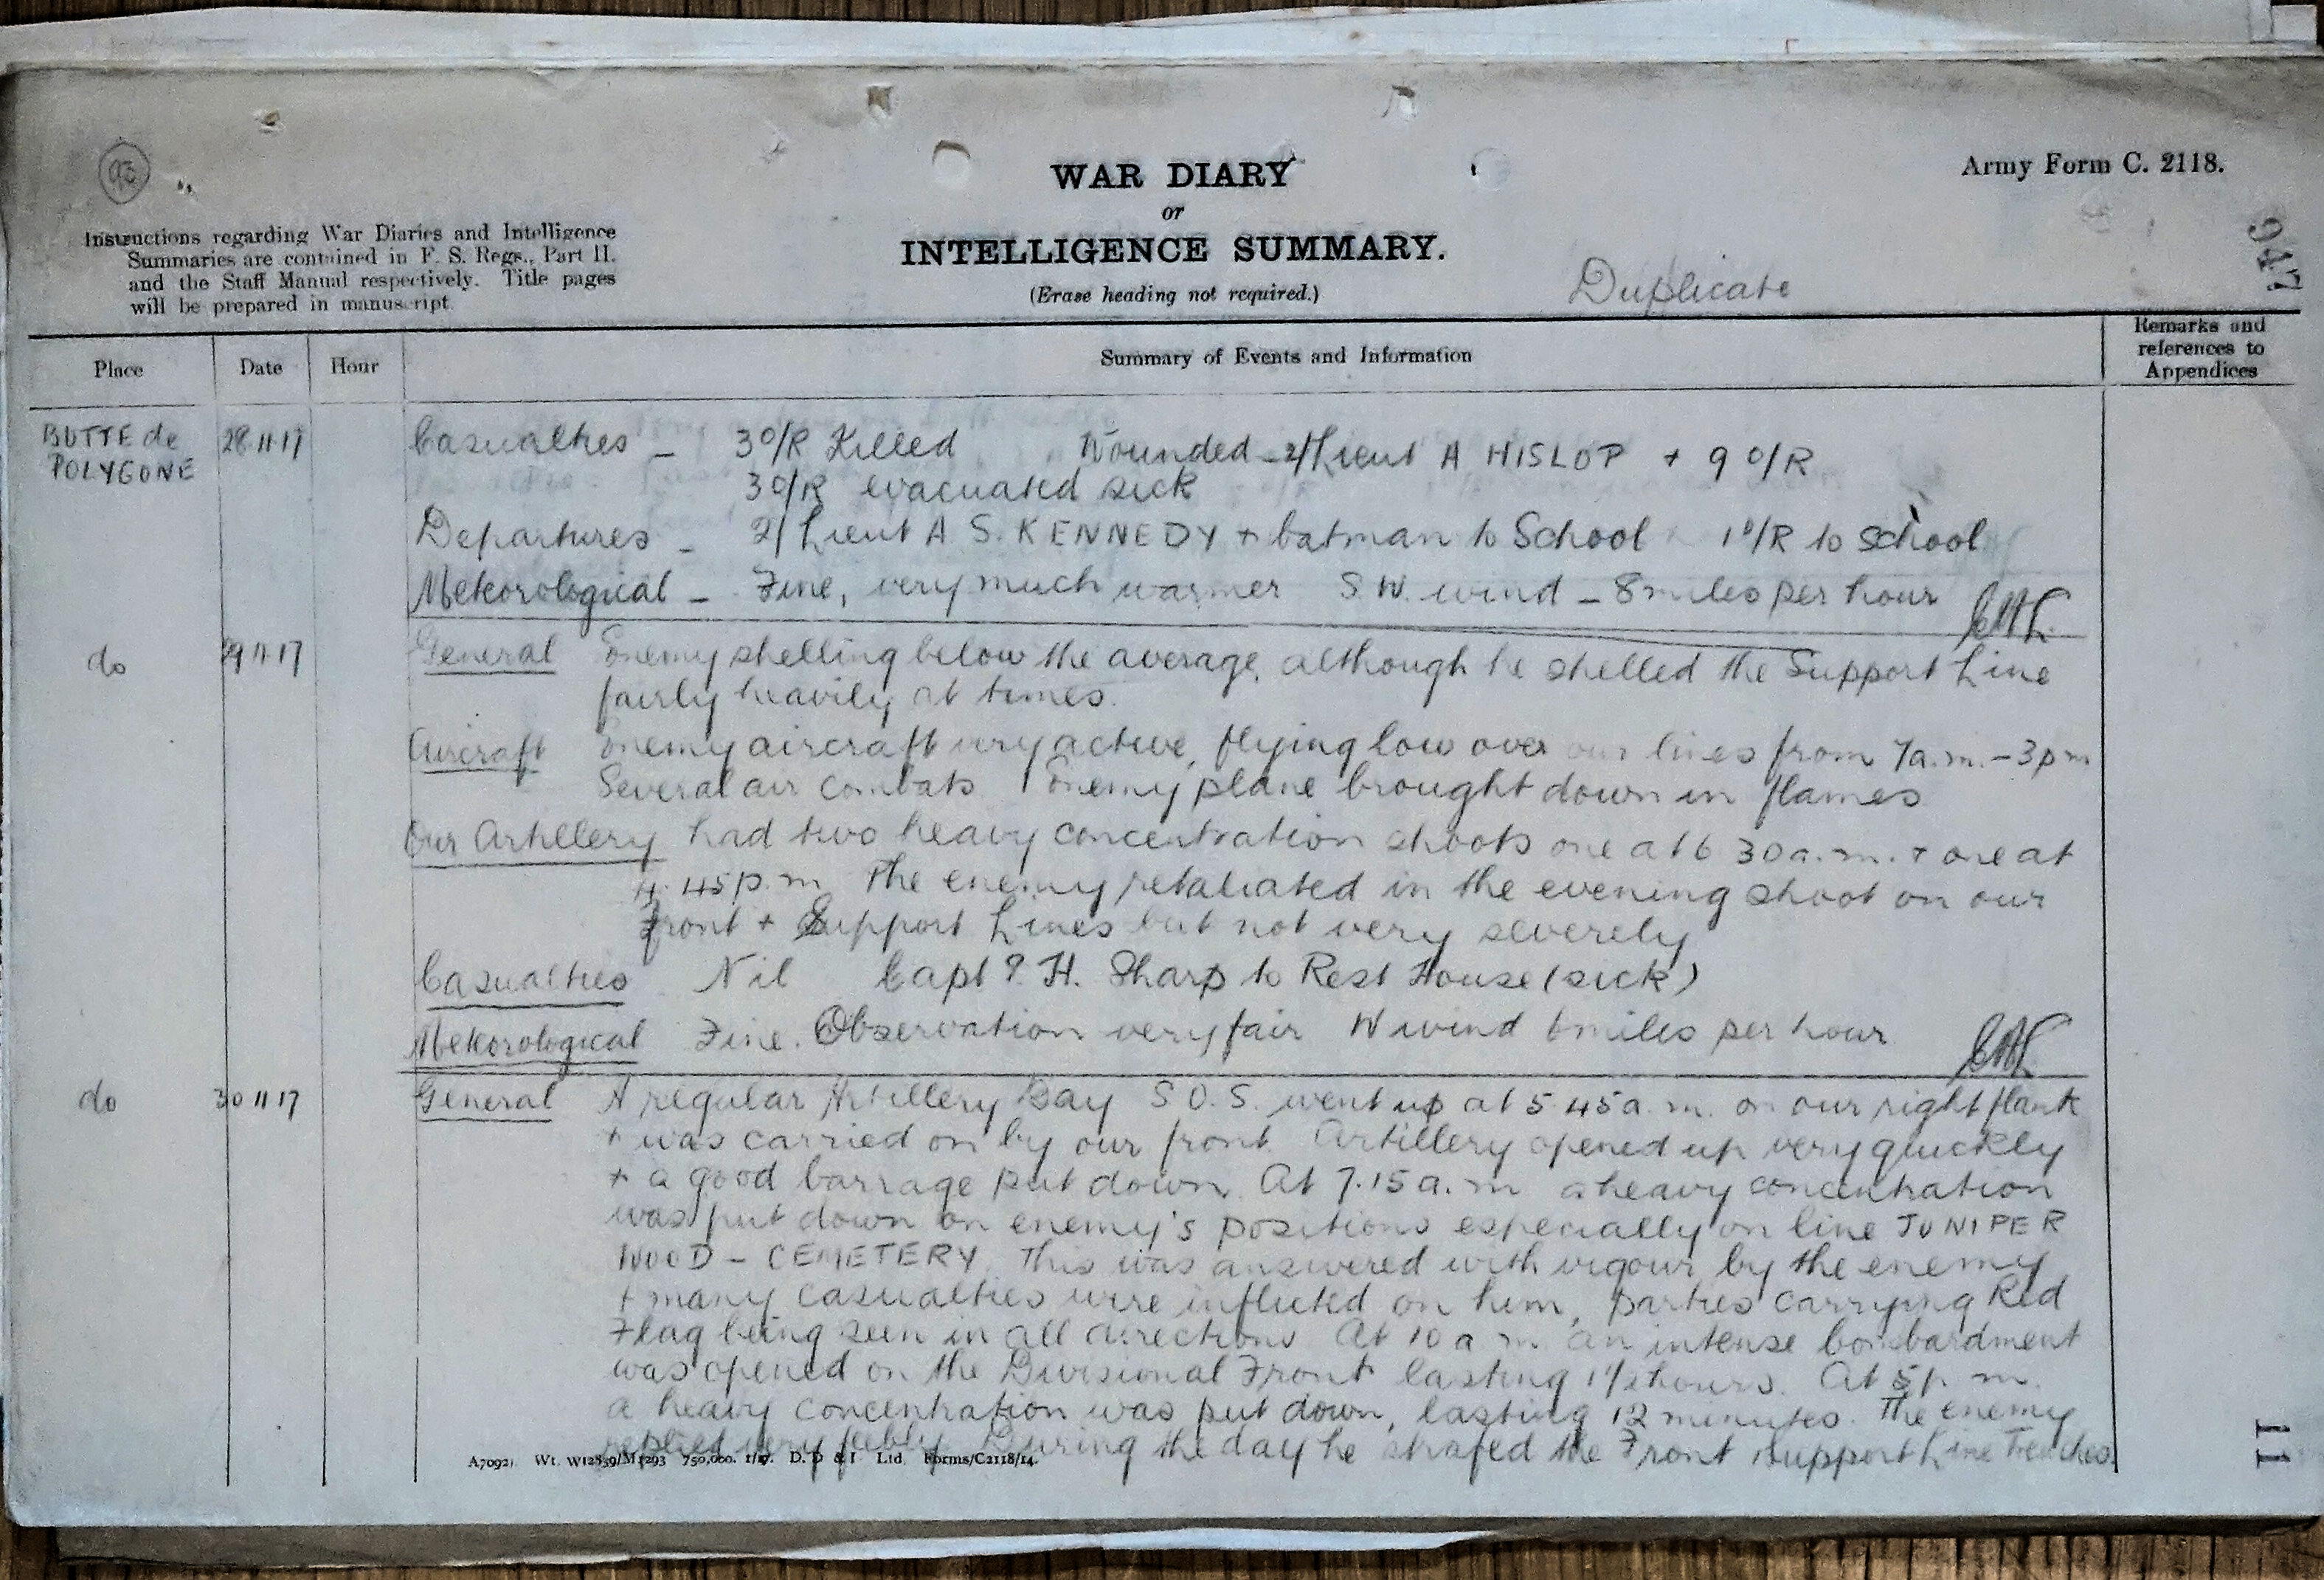 93
WAR DIARY
or
INTELLIGENCE SUMMARY.
(Erase heading not required.)
Army Form C. 2118.
Instructions regarding War Diaries and Intelligence
Summaries are contained in F. S. Regs., Part II.
and the Staff Manual respectively. Title pages
will be prepared in manuscript.
Duplicate
947
Place Date Hour Summary of Events and Information Remarks and
references to
Appendices
BUTTE de POLYGONE 28.11.17 Casualties – 3 O/R Killed Wounded – 2/Lieut A HISLOP + 9 O/R
3 O/R evacuated sick
Departures – 2/Lieut A S. KENNEDY + batman to School 1 O/R to school
Meteorological – Fine, very much warmer S.W. wind – 8 miles per hour
do 29 11 17 General Enemy shelling below the average, although he shelled the Support Line
fairly heavily at times.
Aircraft Enemy aircraft very active, flying low over our lines from 7a.m. – 3pm
Several air combats 1 enemy plane brought down in flames
Our Artillery had two heavy concentration shoots one at 6 30a.m. + one at
4.45p.m The enemy retaliated in the evening shoot on our
Front + Support Lines but not very severely
Casualties Nil Capt P. H. Sharp to Rest House (sick)
Meteorological Fine. Observation very fair W wind 6 miles per hour
do 30 11 17 General A regular Artillery Day S O.S. went up at 5.45a.m. on our right flank
+ was carried on by our front. Artillery opened up very quickly
+ a good barrage put down. At 7.15a.m a heavy concentration
was put down on enemy's positions especially on line JUNIPER
WOOD – CEMETERY. This was answered with vigour by the enemy
+ many casualties were inflicted on him, parties carrying Red
Flag being seen in all directions. At 10 a m an intense bombardment
was opened on the Divisional Front lasting 1½ hours. At 5p.m.
a heavy concentration was put down, lasting 12 minutes. The enemy
replied very feebly. During the day he strafed the Front Support Line Trenches
A7092). Wt. W12859/M1293 750,000. 1/17. D. D & L Ltd. Forms/C2118/14.
11